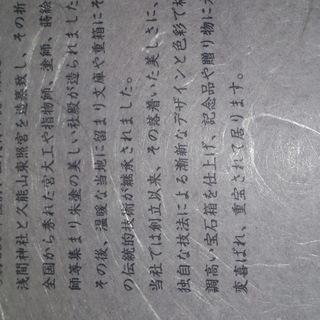 浅間神社と久能山東照宮を造営致し、その折
全国から秀れた宮大工や指物師、塗師、蒔絵
師等集まり朱塗の美しい社殿が造られました
その後、温暖な当地に留まり文庫や重箱にそ
の伝統的技術が継承されました。
当社では創立以来、その落着いた美しさに、
独自な技法による漸新なデザインと色彩で格
調高い宝石箱を仕上げ、記念品や贈り物に大
変喜ばれ、重宝されて居ります。